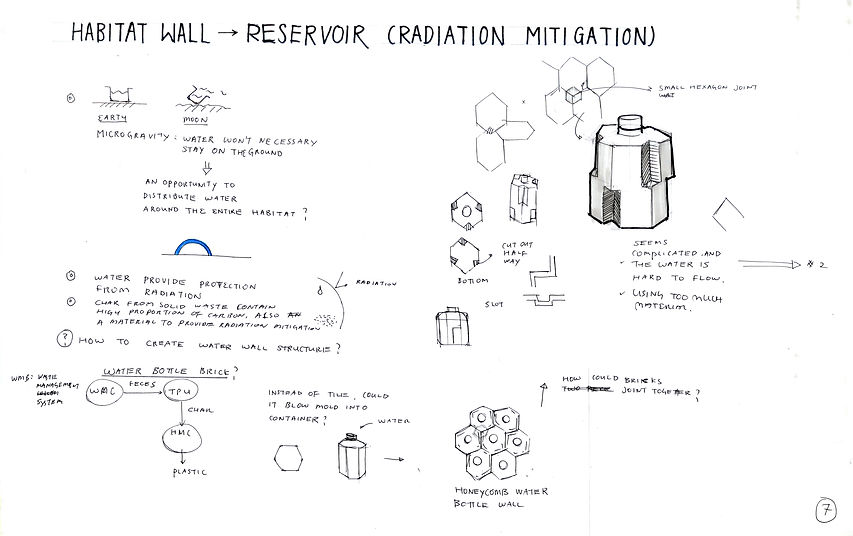 HABITAT WALL → RESERVOIR (RADIATION MITIGATION)
EARTH
MOON
MICROGRAVITY: WATER WON'T NECESSARY
STAY ON THE GROUND
AN OPPORTUNITY TO
DISTRIBUTE WATER
AROUND THE ENTIRE HABITAT?
WATER PROVIDE PROTECTION
FROM RADIATION
CHAR FROM SOLID WASTE CONTAIN
HIGH PROPORTION OF CARBON. ALSO
A MATERIAL TO PROVIDE RADIATION MITIGATION
RADIATION
? HOW TO CREATE WATER WALL STRUCTURE?
WATER BOTTLE BRICK?
MANAGEMENT
SYSTEM
WMC
FECES
TPU
CHAR
HMC
PLASTIC
INSTEAD OF TILE, COULD
IT BLOW MOLD INTO
CONTAINER?
WATER
HONEYCOMB WATER
BOTTLE WALL
HOW COULD BRICKS
JOINT TOGETHER?
SMALL HEXAGON JOINT
CUT OUT
HALF
WAY
BOTTOM
SLOT
SEEMS
COMPLICATED AND
THE WATER IS
HARD TO FLOW.
USING TOO MUCH
MATERIAL.
# 2
7